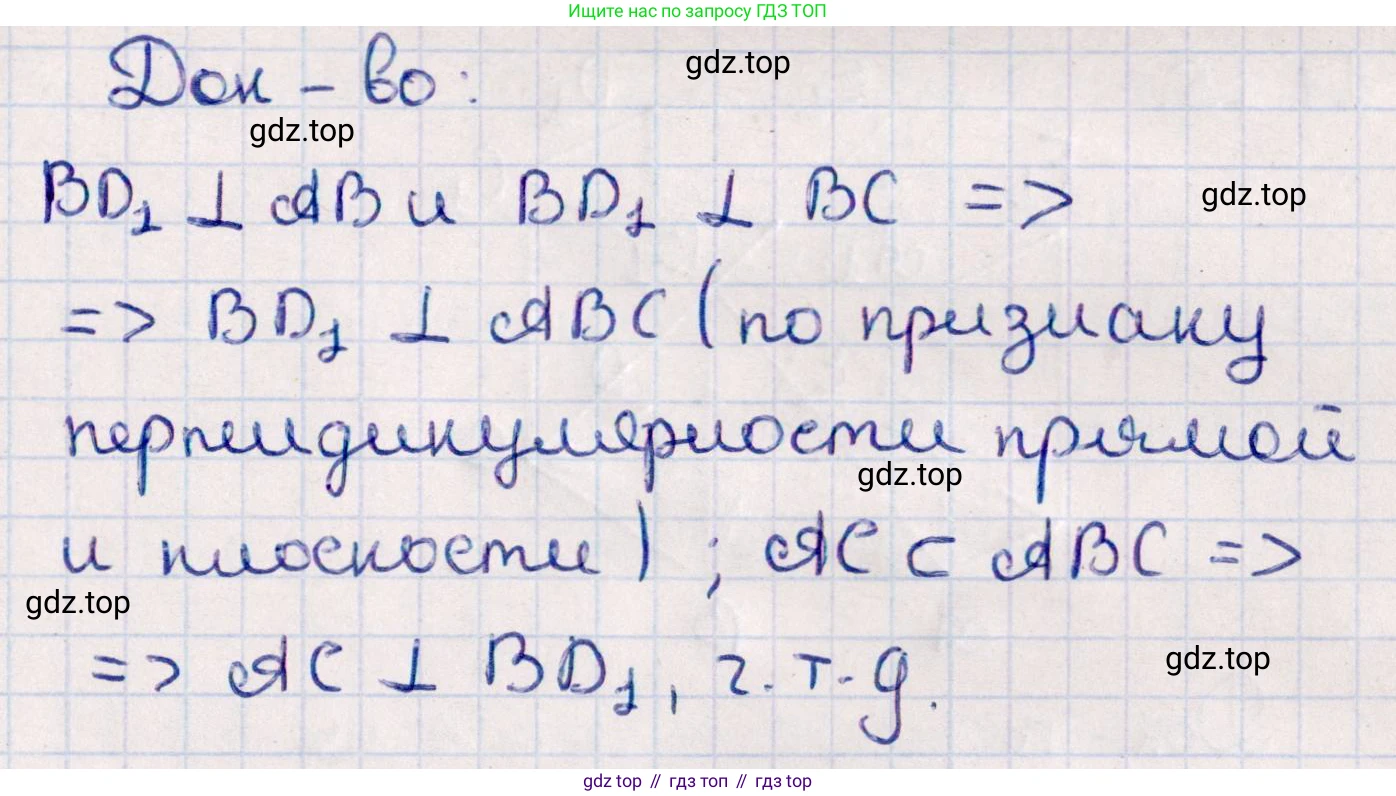 Ищите нас по запросу ГДЗ ТОП
Док-во:
gdz.top
gdz.top
BD₁ ⊥ AB и BD₁ ⊥ BC =>
gdz.top
=> BD₁ ⊥ ABC (по признаку
перпендикулярности прямой
gdz.top
и плоскости) ; AC ⊂ ABC =>
gdz.top
=> AC ⊥ BD₁, ч.т.д.
gdz.top
gdz top // гдз топ // gdz top